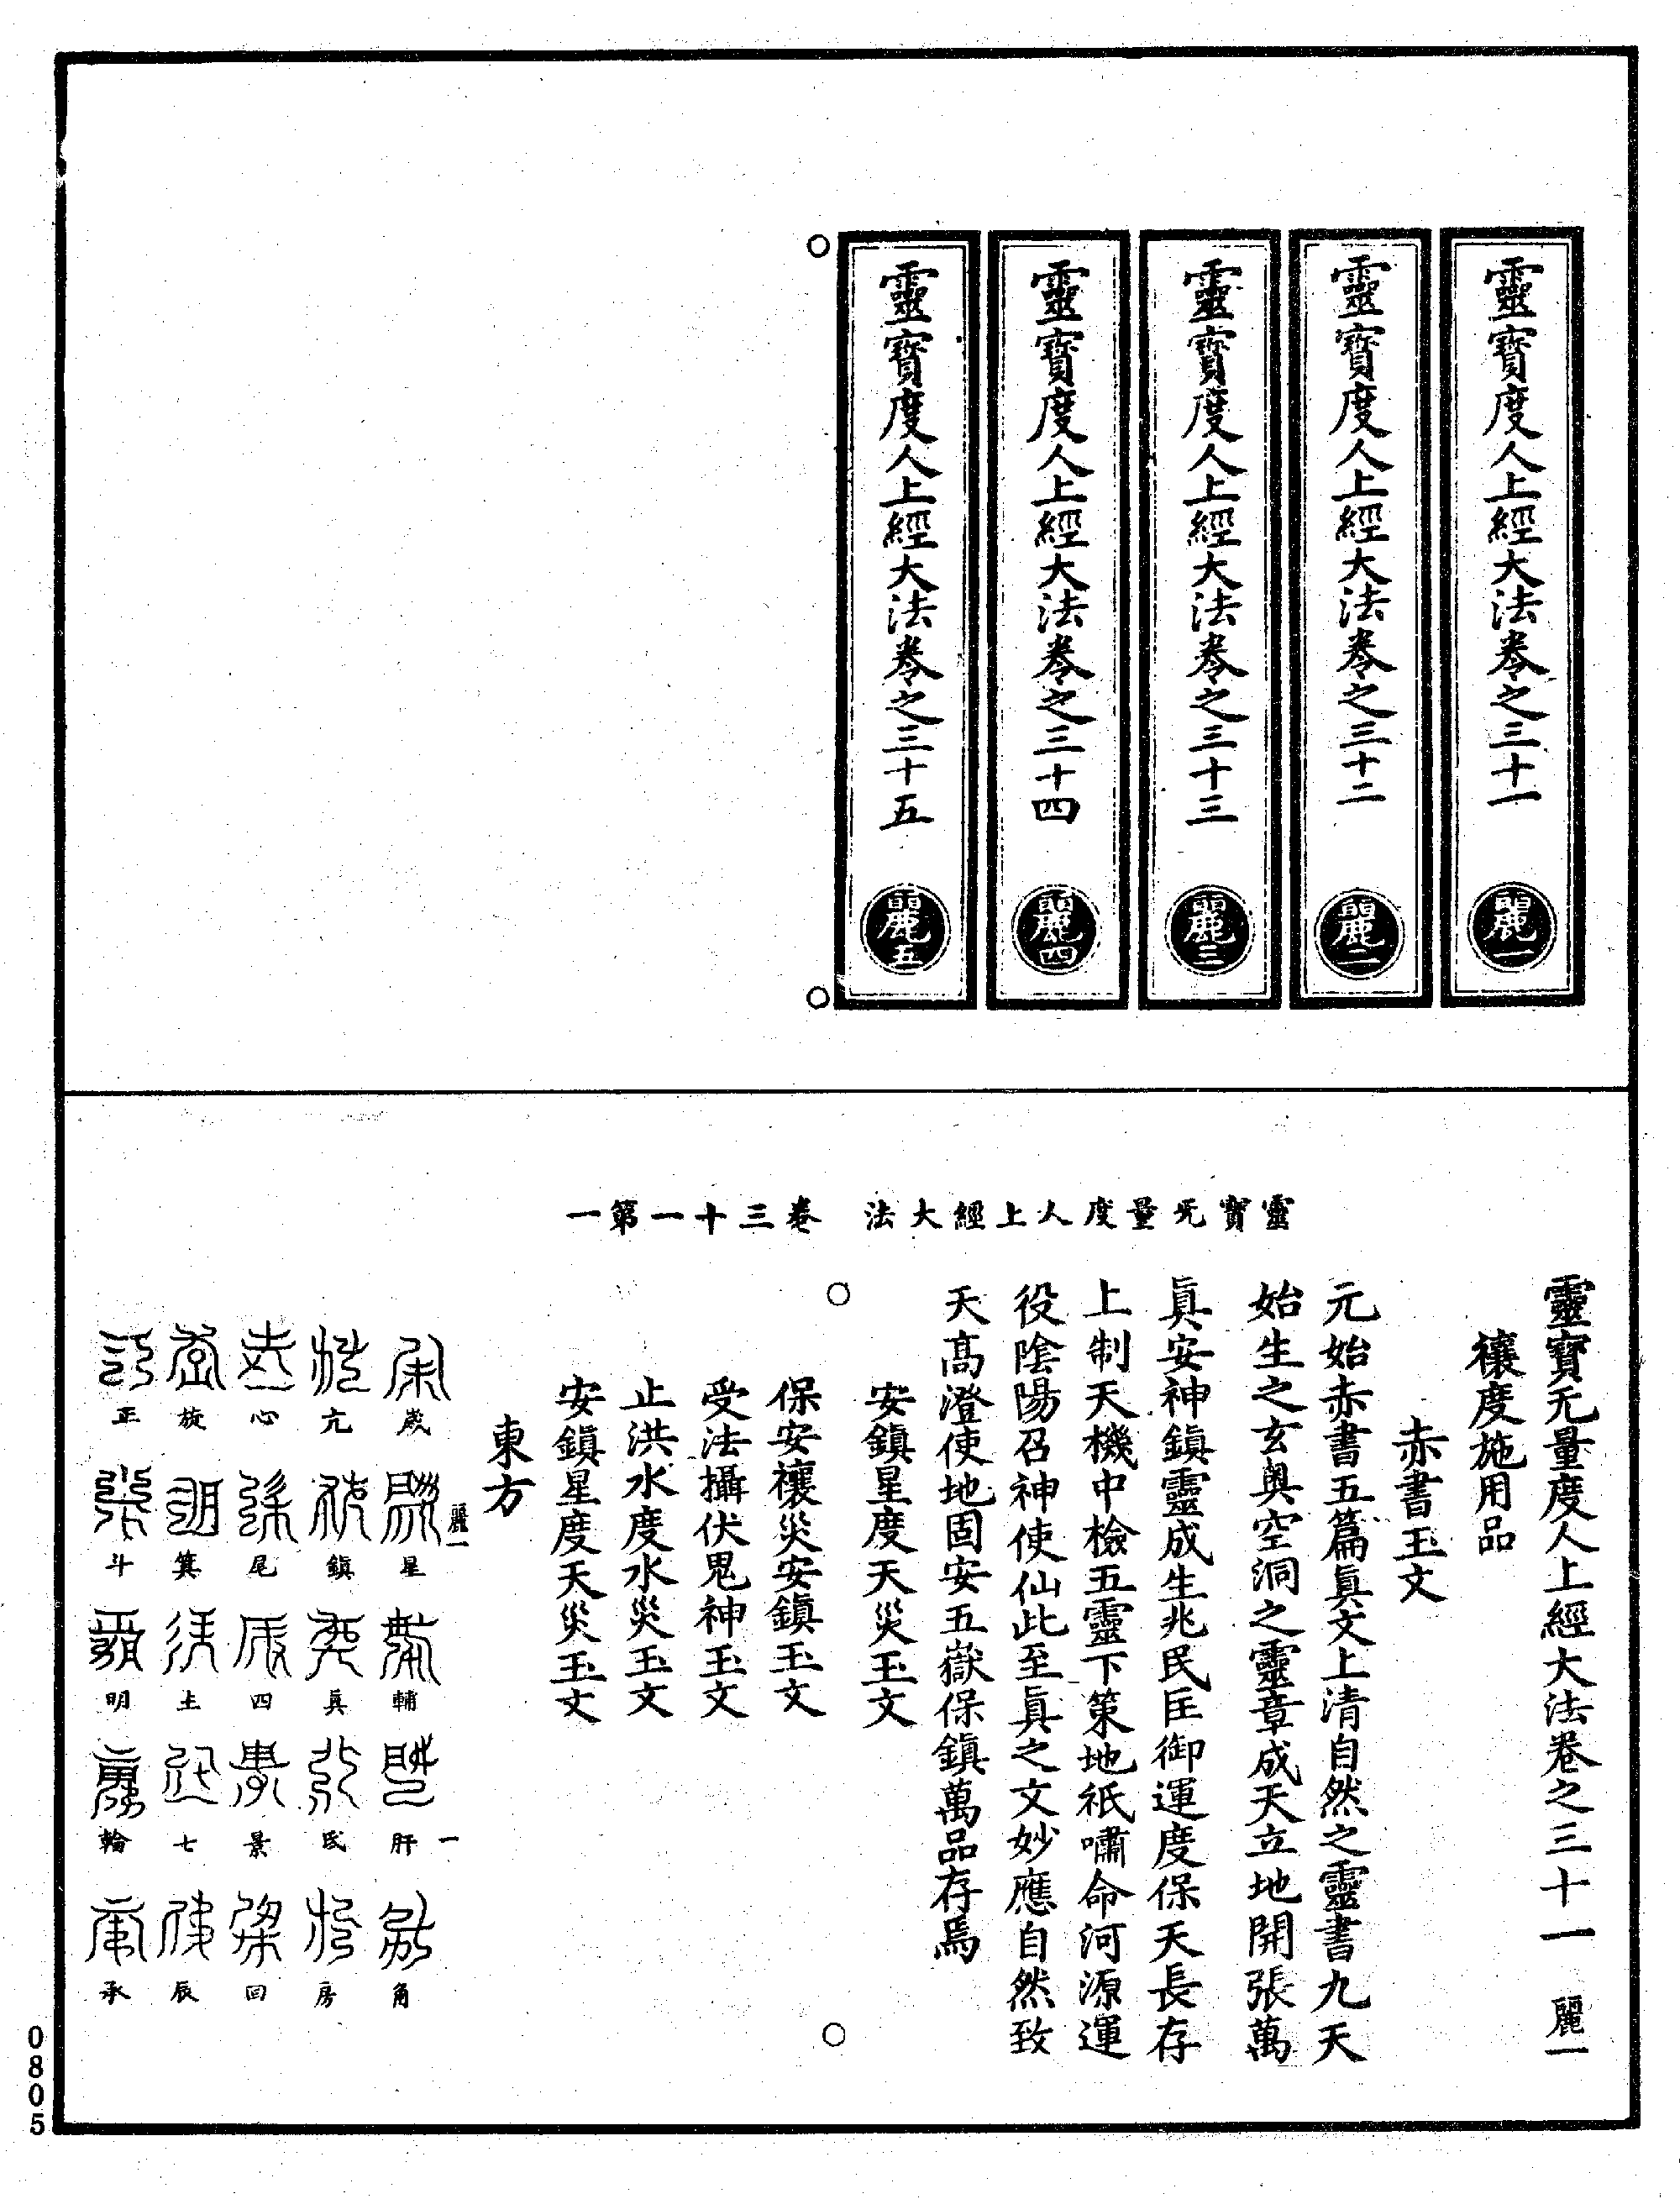 靈寶度人上經大法卷之三十一 麗一
靈寶度人上經大法卷之三十二 麗二
靈寶度人上經大法卷之三十三 麗三
靈寶度人上經大法卷之三十四 麗四
靈寶度人上經大法卷之三十五 麗五
靈寶无量度人上經大法 卷三十一第一
靈寶无量度人上經大法卷之三十一 麗一
禳度施用品
赤書玉文
元始赤書五篇眞文上清自然之靈書九天
始生之玄奥空洞之靈章成天立地開張萬
眞安神鎮靈成生兆民匡御運度保天長存
上制天機中檢五靈下策地祇嘯命河源運
役陰陽召神使仙此至眞之文妙應自然致
天髙澄使地固安五嶽保鎮萬品存焉
安鎮星度天災玉文
保安禳災安鎮玉文
受法攝伏鬼神玉文
止洪水度水災玉文
安鎮星度天災玉文
東方
歲 星 輔 肝 角
麗一 一
亢 鎮 眞 氐 房
心 尾 四 景 回
旋 箕 主 七 辰
正 斗 明 輪 承
0805